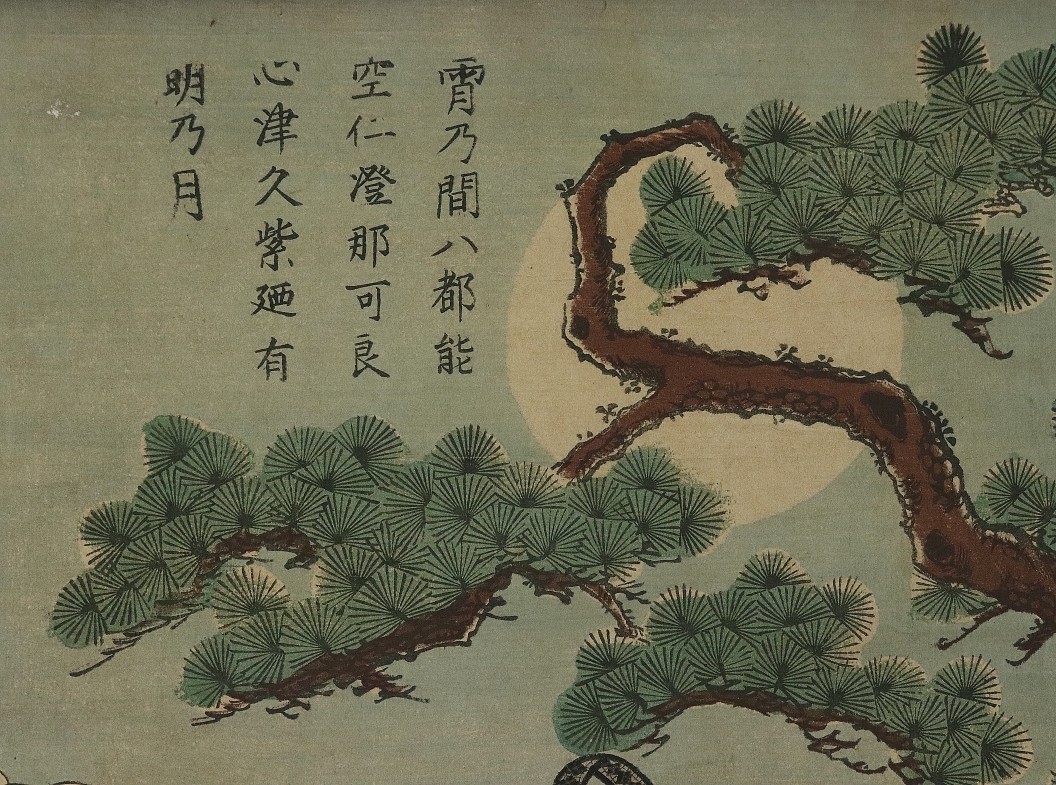 霄乃間八都能
空仁澄那可良
心津久紫廼有
明乃月